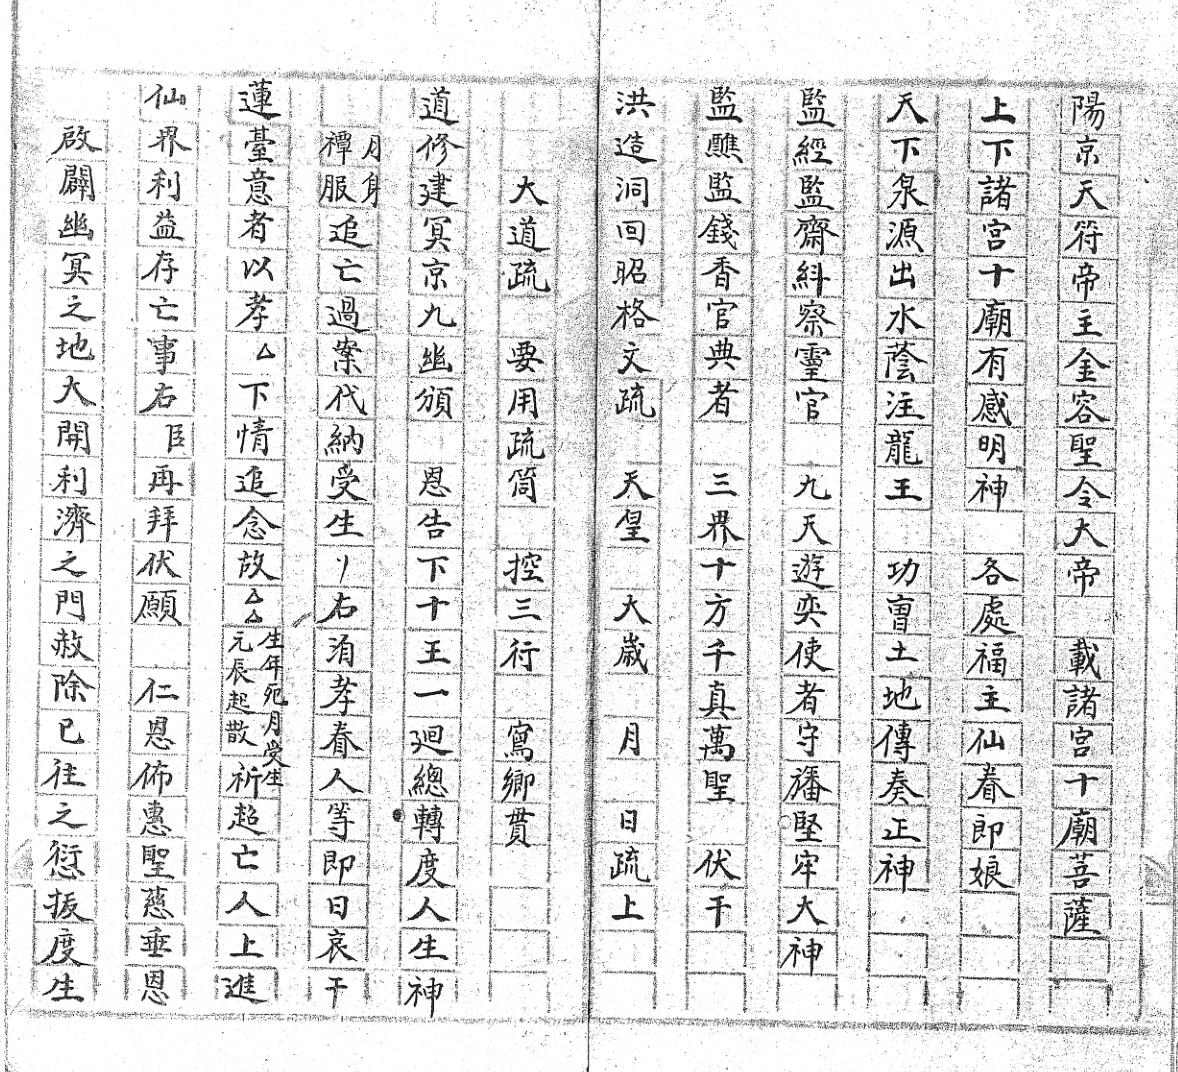 陽京天符帝主金容聖令大帝　載諸宮十廟菩薩
上下諸宮十廟有感明神　各處福主仙眷即娘
天下泉源出水蔭注龍王　功曺土地傳奏正神
監經監齋糾察靈官　九天遊奕使者守旛堅牢大神
監醮監錢香官典者　三界十方千真萬聖　伏干
洪造洞回昭格文疏　天皇　大歲　月　日疏上
大道疏　要用疏筒　控三行　寫鄉貫
道修建冥京九幽頒　恩告下十王一廻總轉度人生神
月身禫服追亡過案代納受生刂右洎孝眷人等即日哀干
蓮臺意者以孝△下情追念故△△生年死月受生元辰起散祈超亡人上進
仙界利益存亡事右臣再拜伏願　仁恩佈惠聖慈垂恩
啟闢幽冥之地大開利濟之門赦除已往之愆扳度生